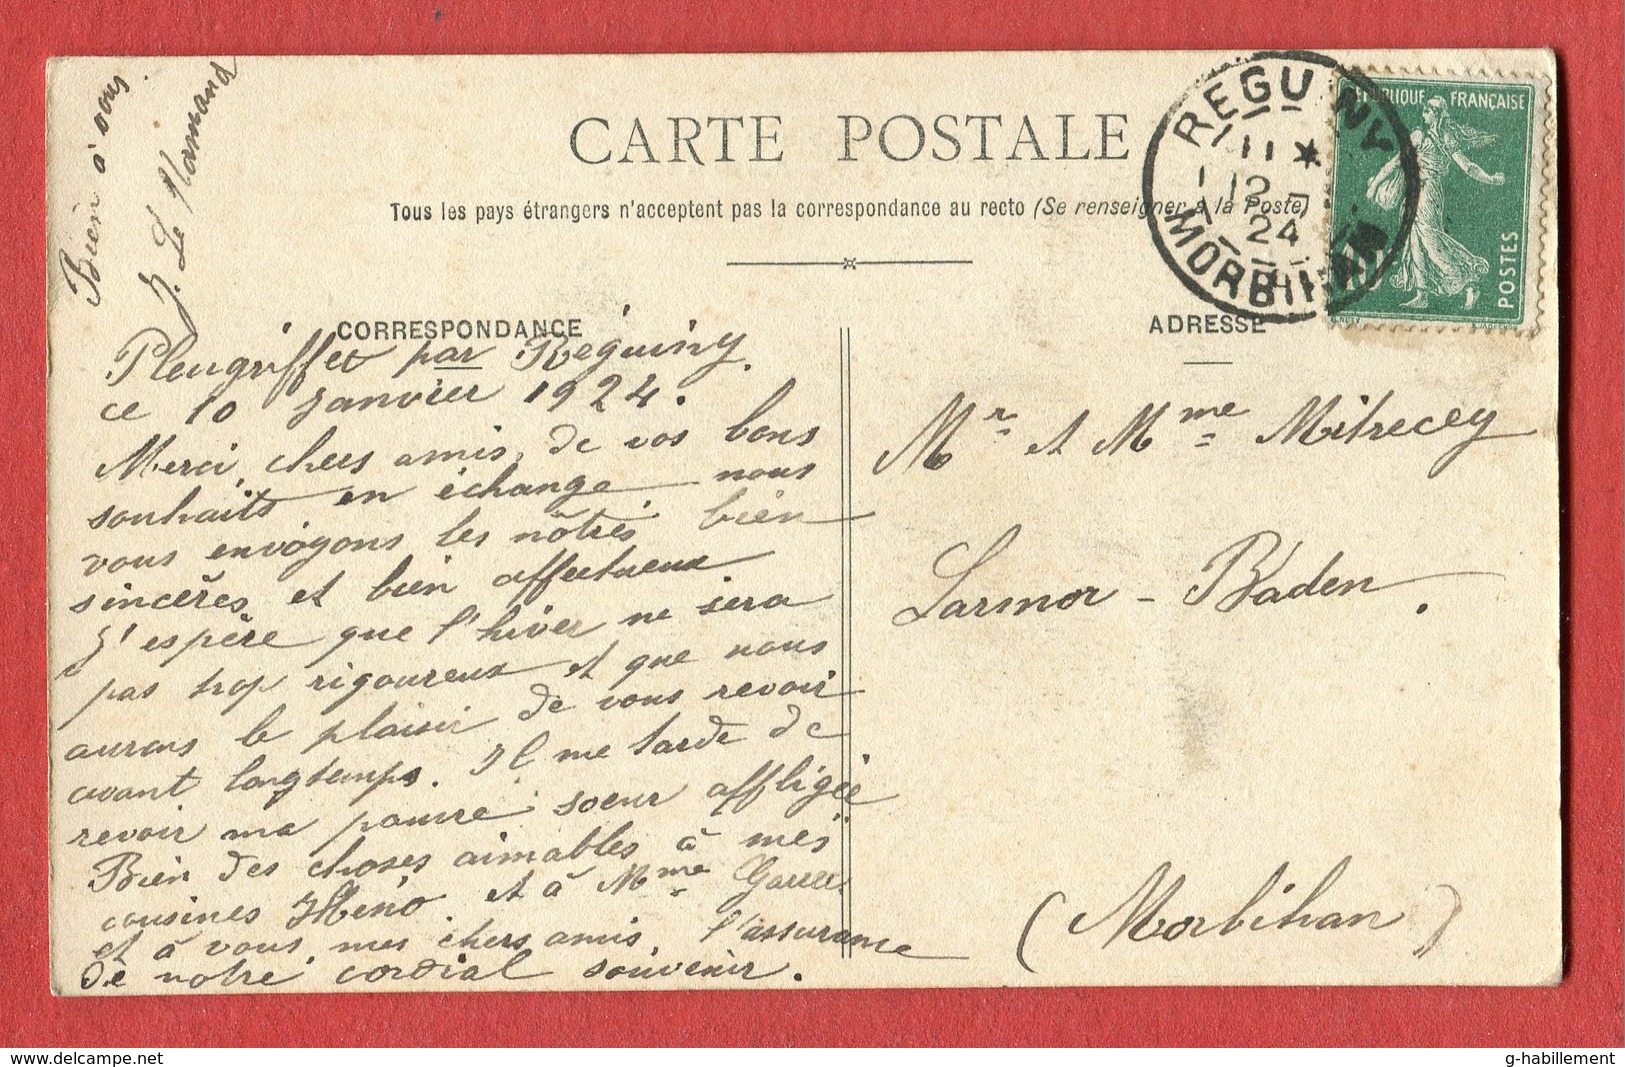 Bien à vous.
J. Le Flamand
CARTE POSTALE
Tous les pays étrangers n'acceptent pas la correspondance au recto (Se renseigner à la Poste)
REGUINY
11 *
12 -
24
MORBIHAN
REPUBLIQUE FRANÇAISE
POSTES
CORRESPONDANCE
ADRESSE
Pleugriffet par Réguiny.
ce 10 Janvier 1924.
Merci, chers amis, de vos bons
souhaits en échange nous
vous envoyons les nôtres bien
sincères et bien affectueux
J'espère que l'hiver ne sera
pas trop rigoureux et que nous
aurons le plaisir de vous revoir
avant longtemps. Il me tarde de
revoir ma pauvre soeur affligée
Bien des choses aimables à mes
cousines et à Mme
et à vous, mes chers amis, l'assurance
de notre cordial souvenir.
Mr et Mme Mitrecey
Larmor - Baden.
(Morbihan)
www.delcampe.net
g-habillement